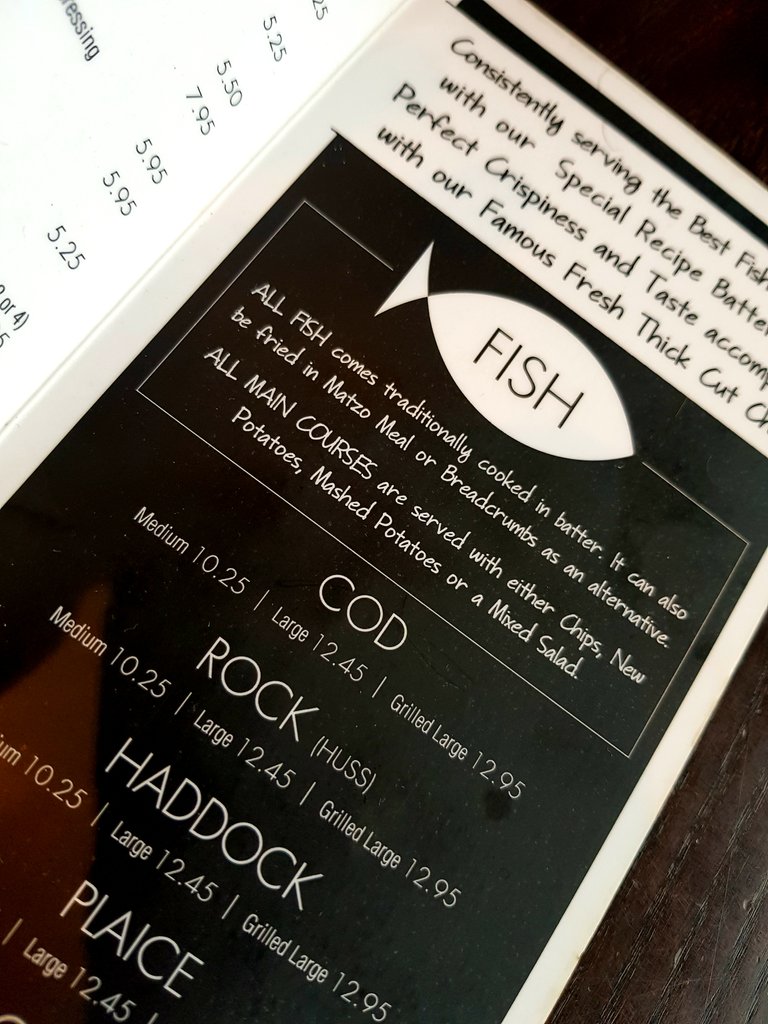 ressing
5.25
5.50
7.95
5.95
5.95
5.25
or 4)
Consistently serving the Best Fish
with our Special Recipe Batter
Perfect Crispiness and Taste accomp
with our Famous Fresh Thick Cut Ch
FISH
ALL FISH comes traditionally cooked in batter. It can also
be fried in Matzo Meal or Breadcrumbs as an alternative.
ALL MAIN COURSES are served with either Chips, New
Potatoes, Mashed Potatoes or a Mixed Salad.
COD
Medium 10.25 | Large 12.45 | Grilled Large 12.95
ROCK (HUSS)
Medium 10.25 | Large 12.45 | Grilled Large 12.95
HADDOCK
ium 10.25 | Large 12.45 | Grilled Large 12.95
PLAICE
| Large 12.45 |